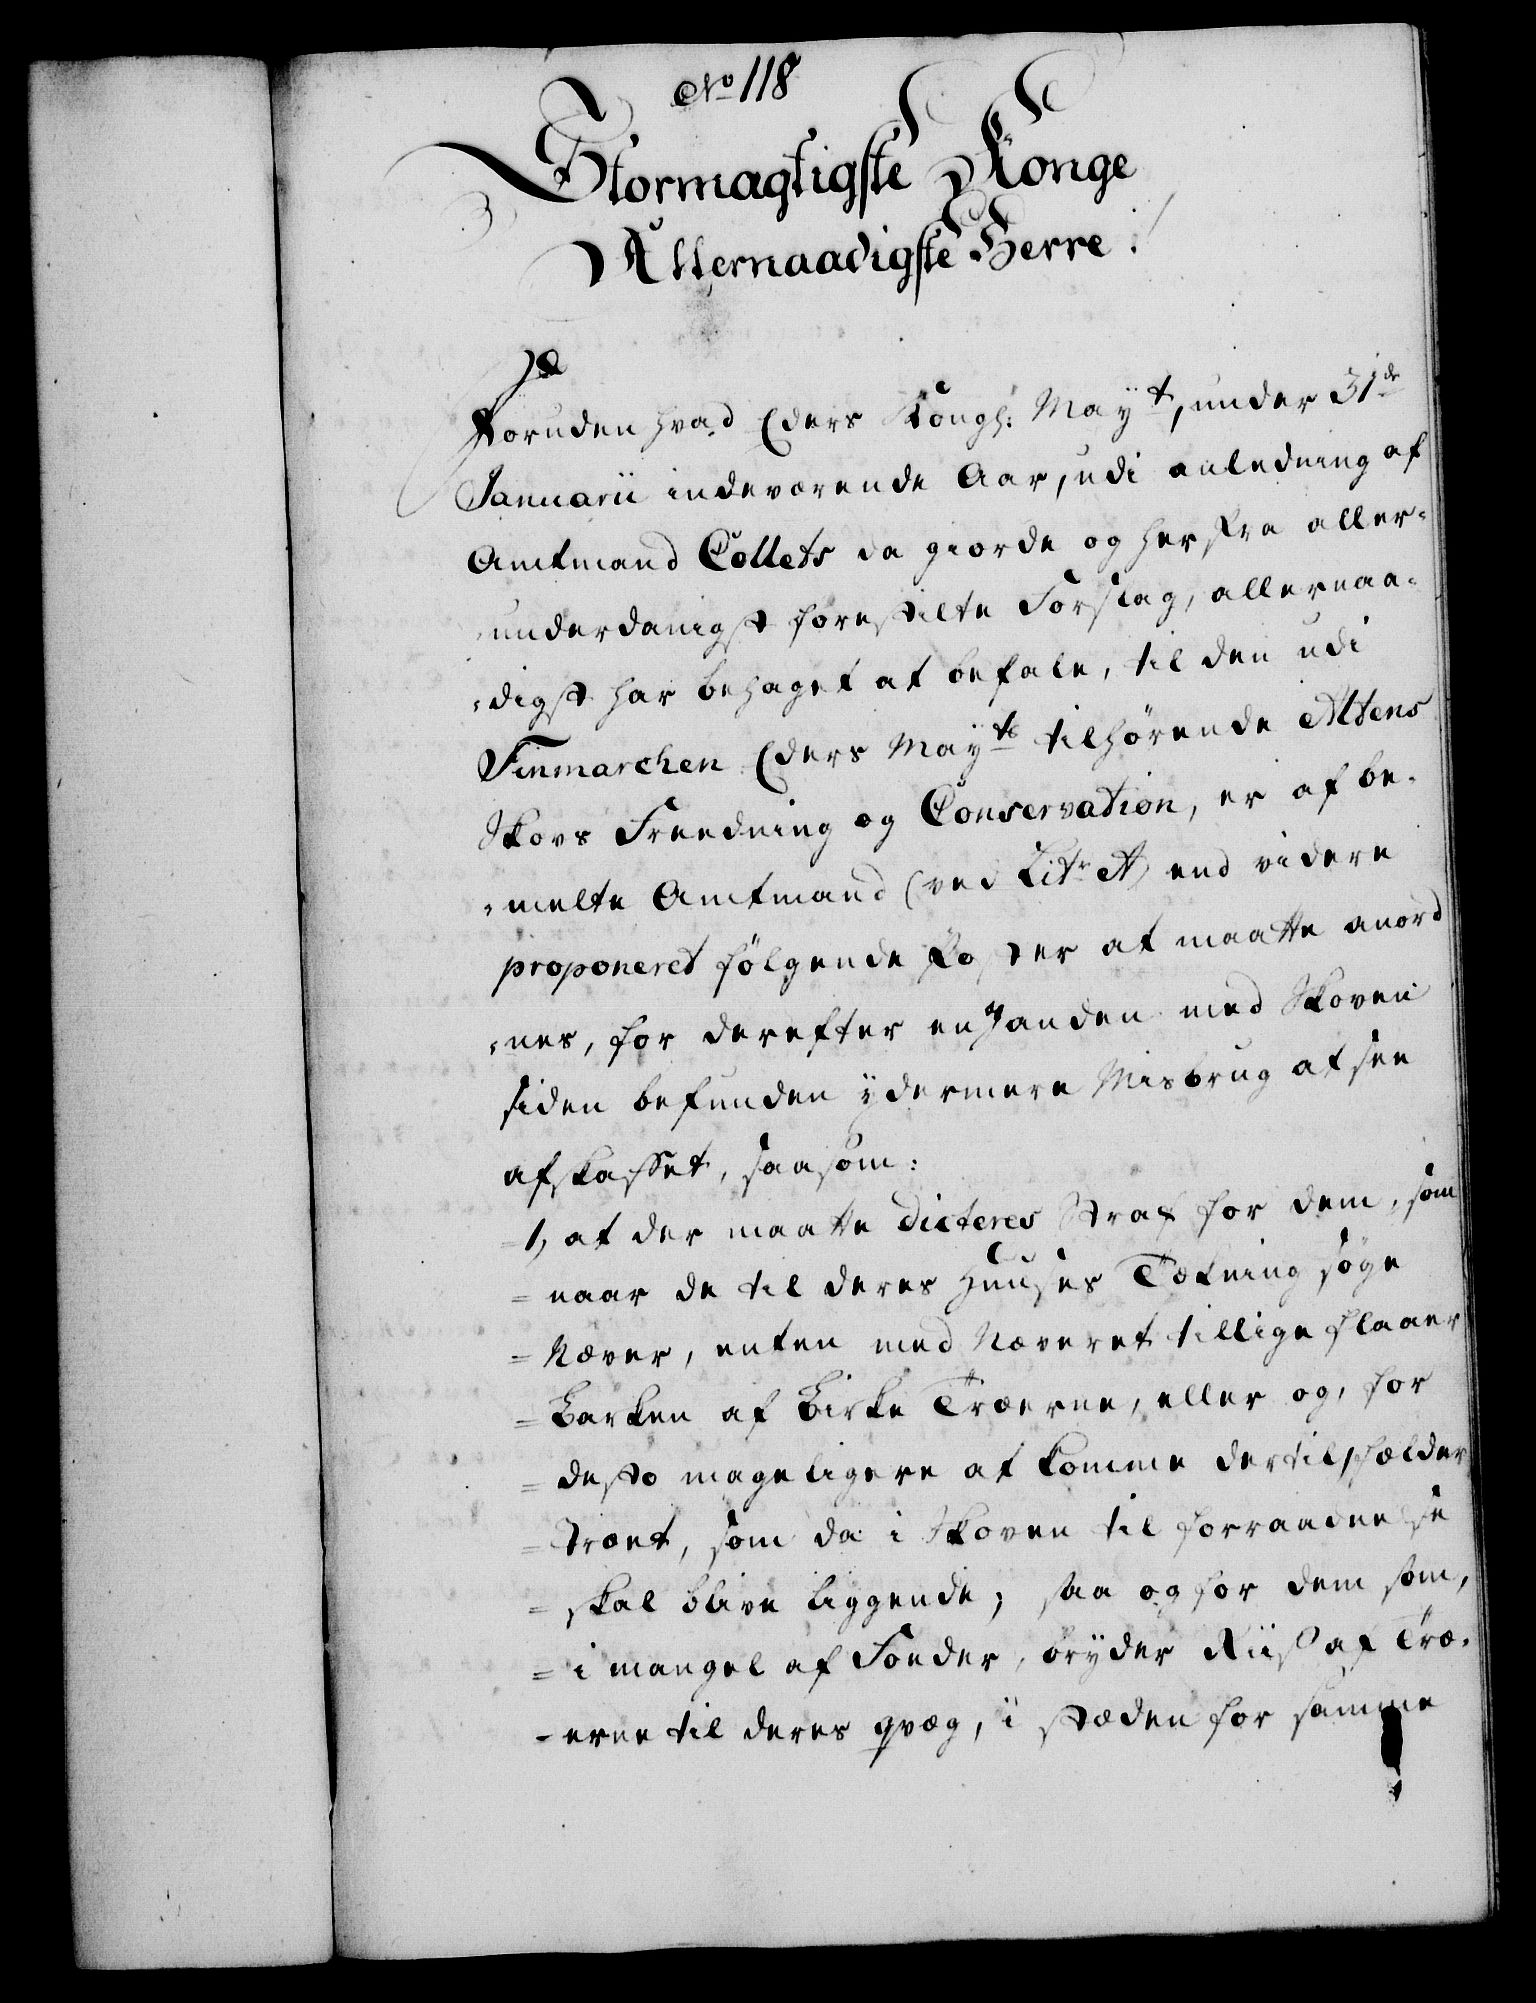 No 118
Stormagtigste Konge
Allernaadigste Herre!
Foruden hvad Eders Kongl: Mayt, under 31de
Januarii indeværende Aar, udi anledning af
Amtmand Collets da giorde og herfra aller-
-underdanigst forestilte Forslag, allernaa-
-digst har behaget at befale, til den udi
Finmarchen Eders Mayts tilhørende Altens
Skovs Freedning og Conservation, er af be-
-melte Amtmand (ved Litr A) end videre
proponeret følgende Poster at maatte anord
-nes, for derefter en anden med Skoven
siden befunden ydermere Misbrug at see
afskaffet, saasom:
=1, at der maatte dicteres Straf for dem, som
= naar de til deres Huuses Tækning søge
= Næver, enten med Næveret tillige flaaer
= Barken af Birke Træerne, eller og, for
= desto mageligere at komme dertil, fælder
= Træet, som da i Skoven til forraadnelse
= skal blive liggende; saa og for dem som,
= i mangel af Foeder, bryder Riis af Træ-
- erne til deres qvæg, i stæden for samme